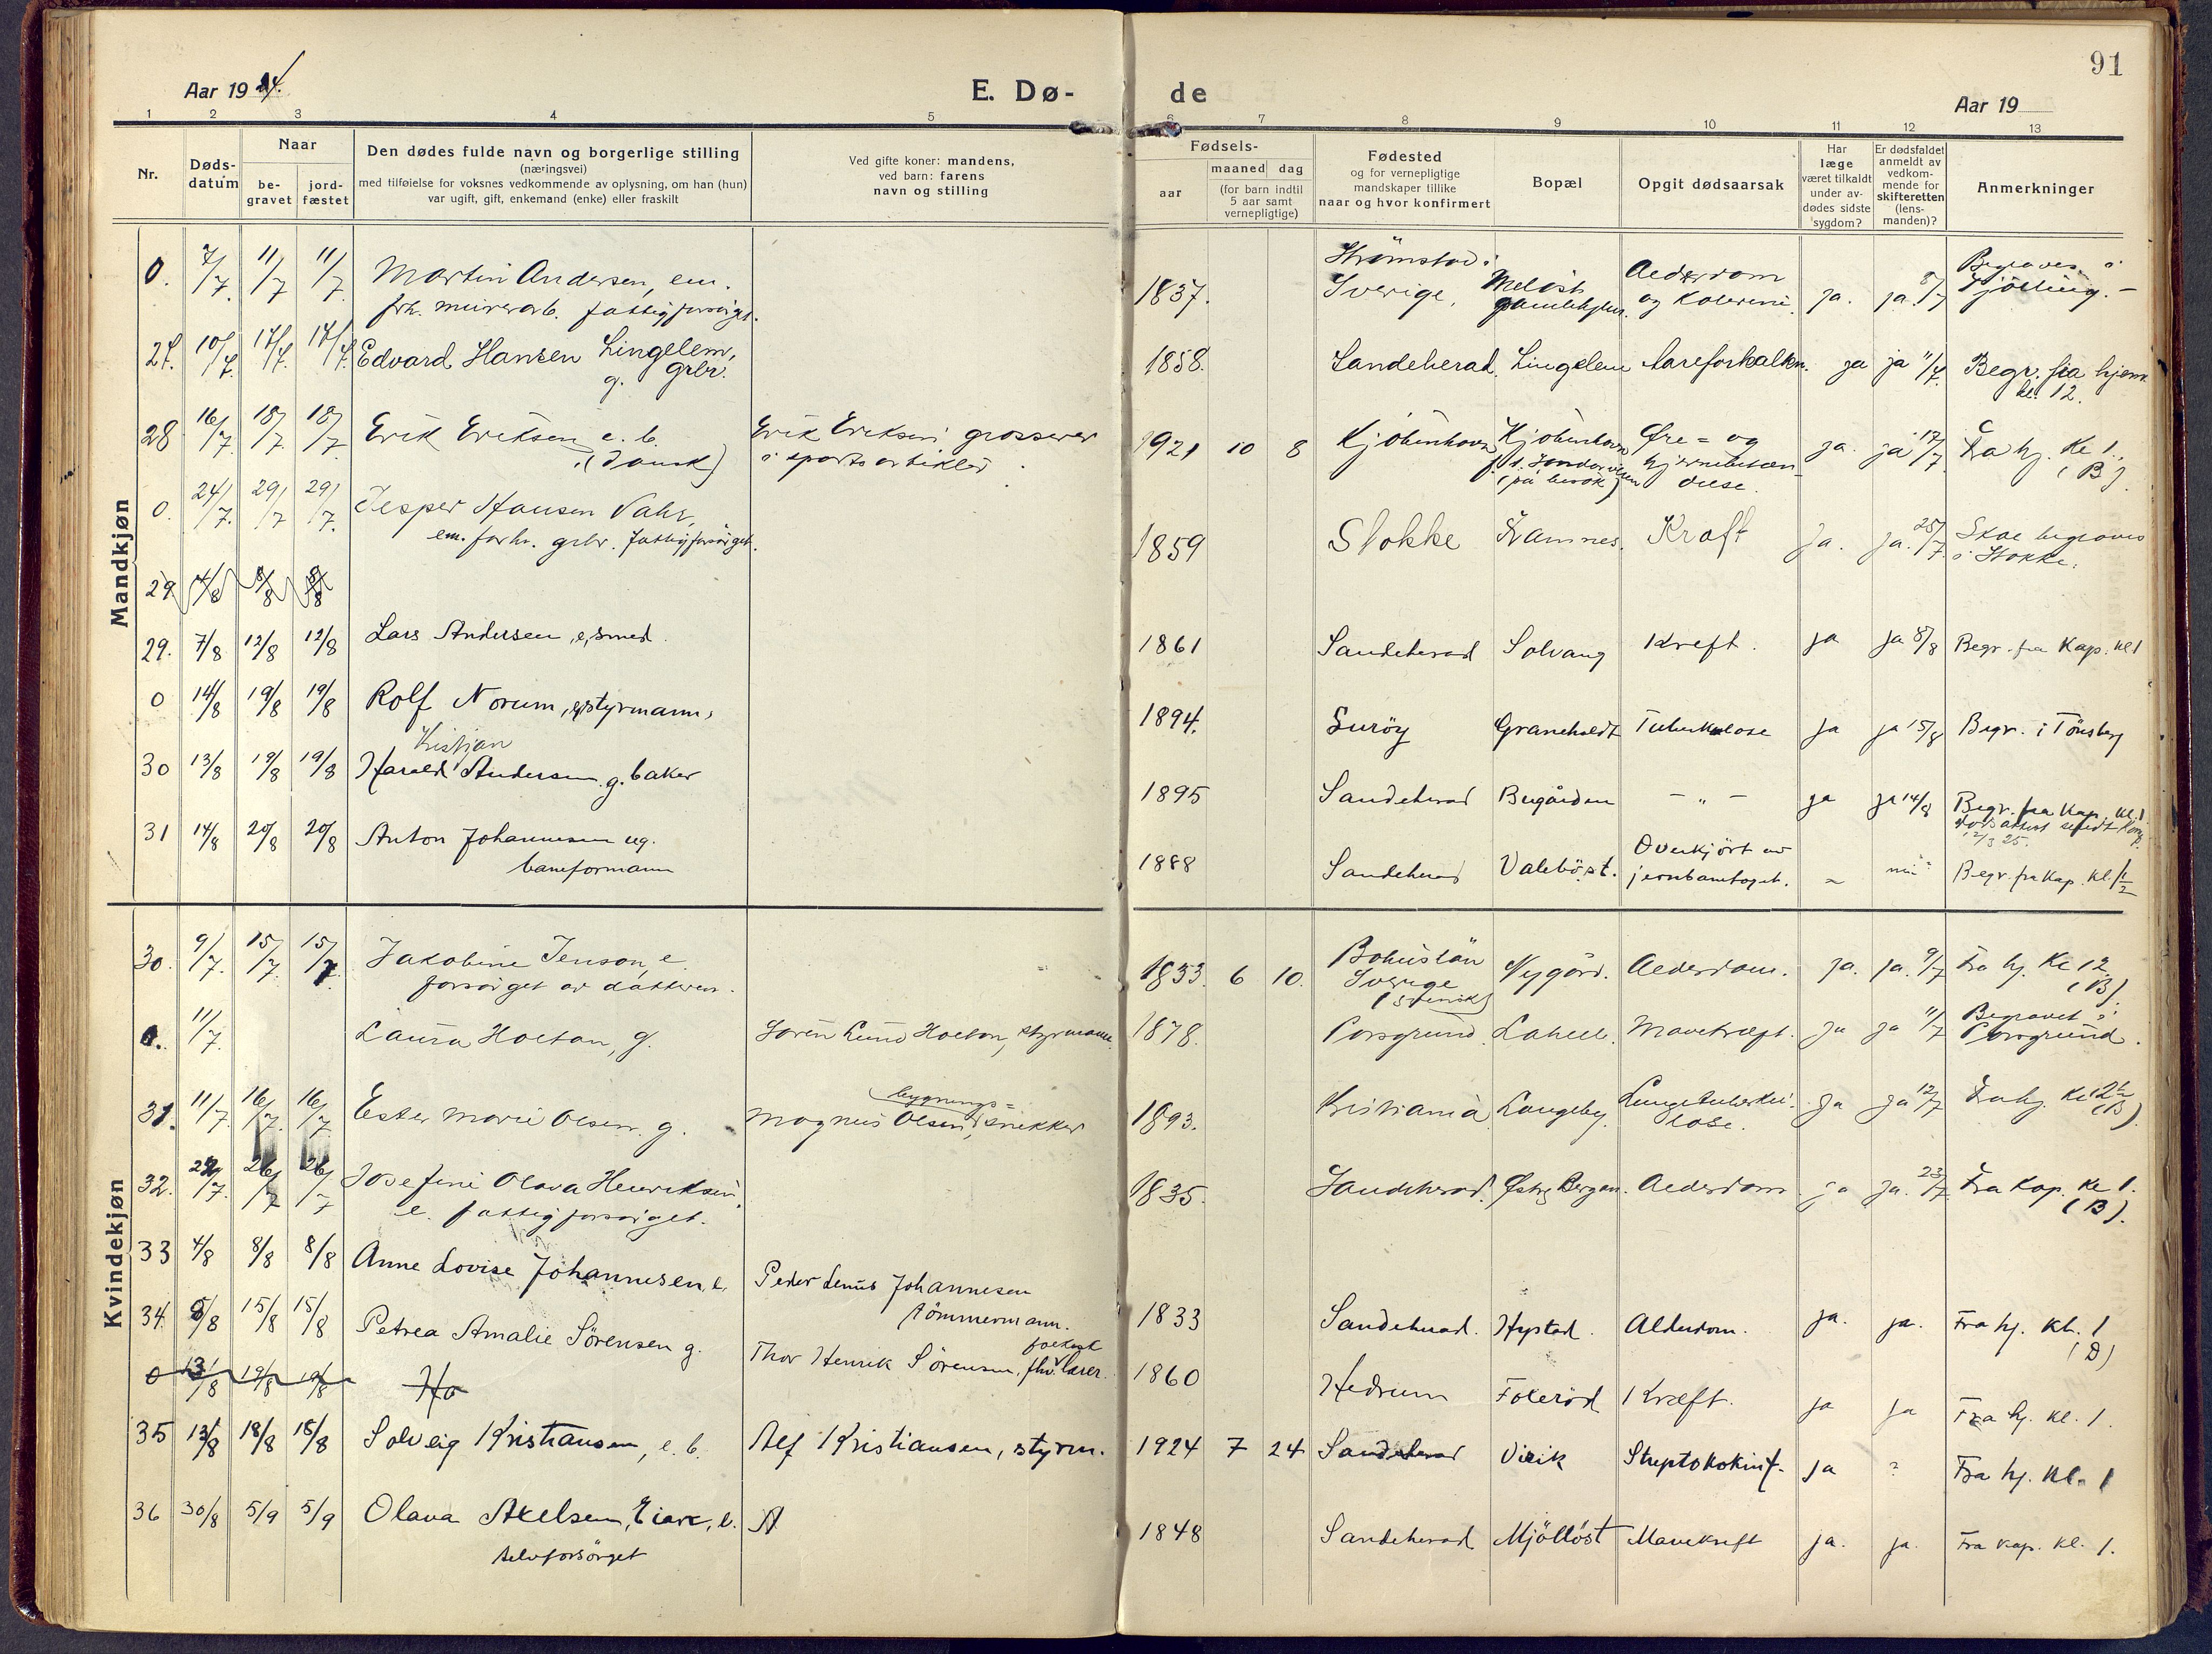 91
Aar 1924.
E. Dø-
de
Aar 19
1 2 3 4 5 6 7 8 9 10 11 12 13
Nr.
Døds-
datum
Naar
be-
gravet
jord-
fæstet
Den dødes fulde navn og borgerlige stilling
(næringsvei)
med tilføielse for voksnes vedkommende av oplysning, om han (hun)
var ugift, gift, enkemand (enke) eller fraskilt
Ved gifte koner: mandens,
ved barn: farens
navn og stilling
Fødsels-
aar
maaned dag
(for barn indtil
5 aar samt
vernepligtige)
Fødested
og for vernepligtige
mandskaper tillike
naar og hvor konfirmert
Bopæl
Opgit dødsaarsak
Har
læge
været tilkaldt
under av-
dødes sidste
sygdom?
Er dødsfaldet
anmeldt av
vedkom-
mende for
skifteretten
(lens-
manden)?
Anmerkninger
Mandkjøn
0. 7/7. 11/7 11/7 Martin Andersen, em.
frh. murerarb. fattigforsørget.
1837. Strømstad i
Sverige. Meløst
gamlehjem. Alderdom
og ja. ja. 8/7 Begraves i
Tjølling. -
27. 10/7. 17/7. 17/7. Edvard Hansen Lingelem,
g. grbr.
1858. Sandeherad. Lingelem Aareforkalkn. ja ja 11/7. Begr. fra hjem.
kl. 12.
28 16/7 18/7 18/7 Erik Eriksen e. b.
(Dansk)
Erik Eriksen grosserer
i sportsartikler.
1921 10 8 Kjöbenhavn Kjöbenhavn
(på besøk) Øre = og
hjernebetæn-
delse. ja. ja 17/7 Fra hj. Kl 1.,
(B).
0. 24/7. 29/7 29/7. Jesper Hansen Vahr,
em. forh. grbr. fattigforsørget.
1859 Stokke Ramnes. Kræft Ja. ja. 25/7 Skal begraves
i Stokke.
29 4/8 8/8 8/8
29. 7/8 12/8 12/8 Lars Andersen, e, smed.
1861 Sandeherad Solvang Kreft. ja ja 8/8 Begr. fra Kap. kl 1
0 14/8 19/8 19/8 Rolf Norum, g, styrmann,
1894. Surøy Graneholdt Tuberkulose ja ja 15/8 Begr. i Tönsberg
30 13/8 19/8 19/8 Harald Kristjan Andersen g. baker
1895 Sandeherad Bugården - „ - ja ja 14/8 Begr. fra Kap. kl. 1.
Dødsattest sendt
12/3 25.
31 14/8 20/8 20/8 Anton Johannesen ug.
baneformann
1888 Sandeherad Valebøst. Overkjört av
jernbanetoget. Begr. fra Kap. kl. 1 1/2
Kvindekjøn
30. 9/7. 15/7. 15/7. Jakobine Jenson, e.
forsørget av datteren.
1833. 6 10. Bohuslän
Sverige
(svensk) Nygård. Alderdom. ja. ja. 9/7 Fra hj. Kl 12
(B).
0. 11/7. Laura Holtan, g.
Søren Lund Holtan, styrmann.
1878. Porsgrund. Lahelle. Mavekræft. ja ja 11/7 Begravet i
Porsgrund.
31. 11/7. 16/7. 16/7 Ester Marie Olsen. g.
Magnus Olsen, bygnings=
snekker
1893. Kristiania Langeby. Lungetuberku-
lose. ja ja 12/7 Fra hj. Kl 12½
(B)
32. 22/7. 26/7 26/7 Josefine Olava Henriksen,
e. fattigforsørget.
1835. Sandeherad. Østre Bergan. Alderdom ja ja. 23/7 Fra Kap. Kl 1.
(B).
33 4/8 8/8 8/8 Anne Lovise Johannesen, e.
Peder Linus Johannesen
tömmermann.
1833 Sandeherad. Hystad. Alderdom. ja. ja. Fra hj. kl. 1
(D)
34 8/8 15/8 15/8 Petrea Amalie Sörensen g.
Thor Henrik Sörensen, fhv. lærer.
1860 Hedrum Fokeröd Kræft. ja ja Fra hj. kl. 1.
0 13/8 19/8 19/8 Ho
35 13/8 18/8 18/8 Solveig Kristiansen, e. b.
Alf Kristiansen, styrm.
1924 7 24 Sandeherad Virik Streptokokinf. ja ? Fra hj. kl. 1
36 30/8 5/9 5/9 Olava Akelsen, Eiane, e.
selvforsörget
A
1848 Sandeherad Mjölløst Mavekreft ja. ja. Fra kap. kl. 1.